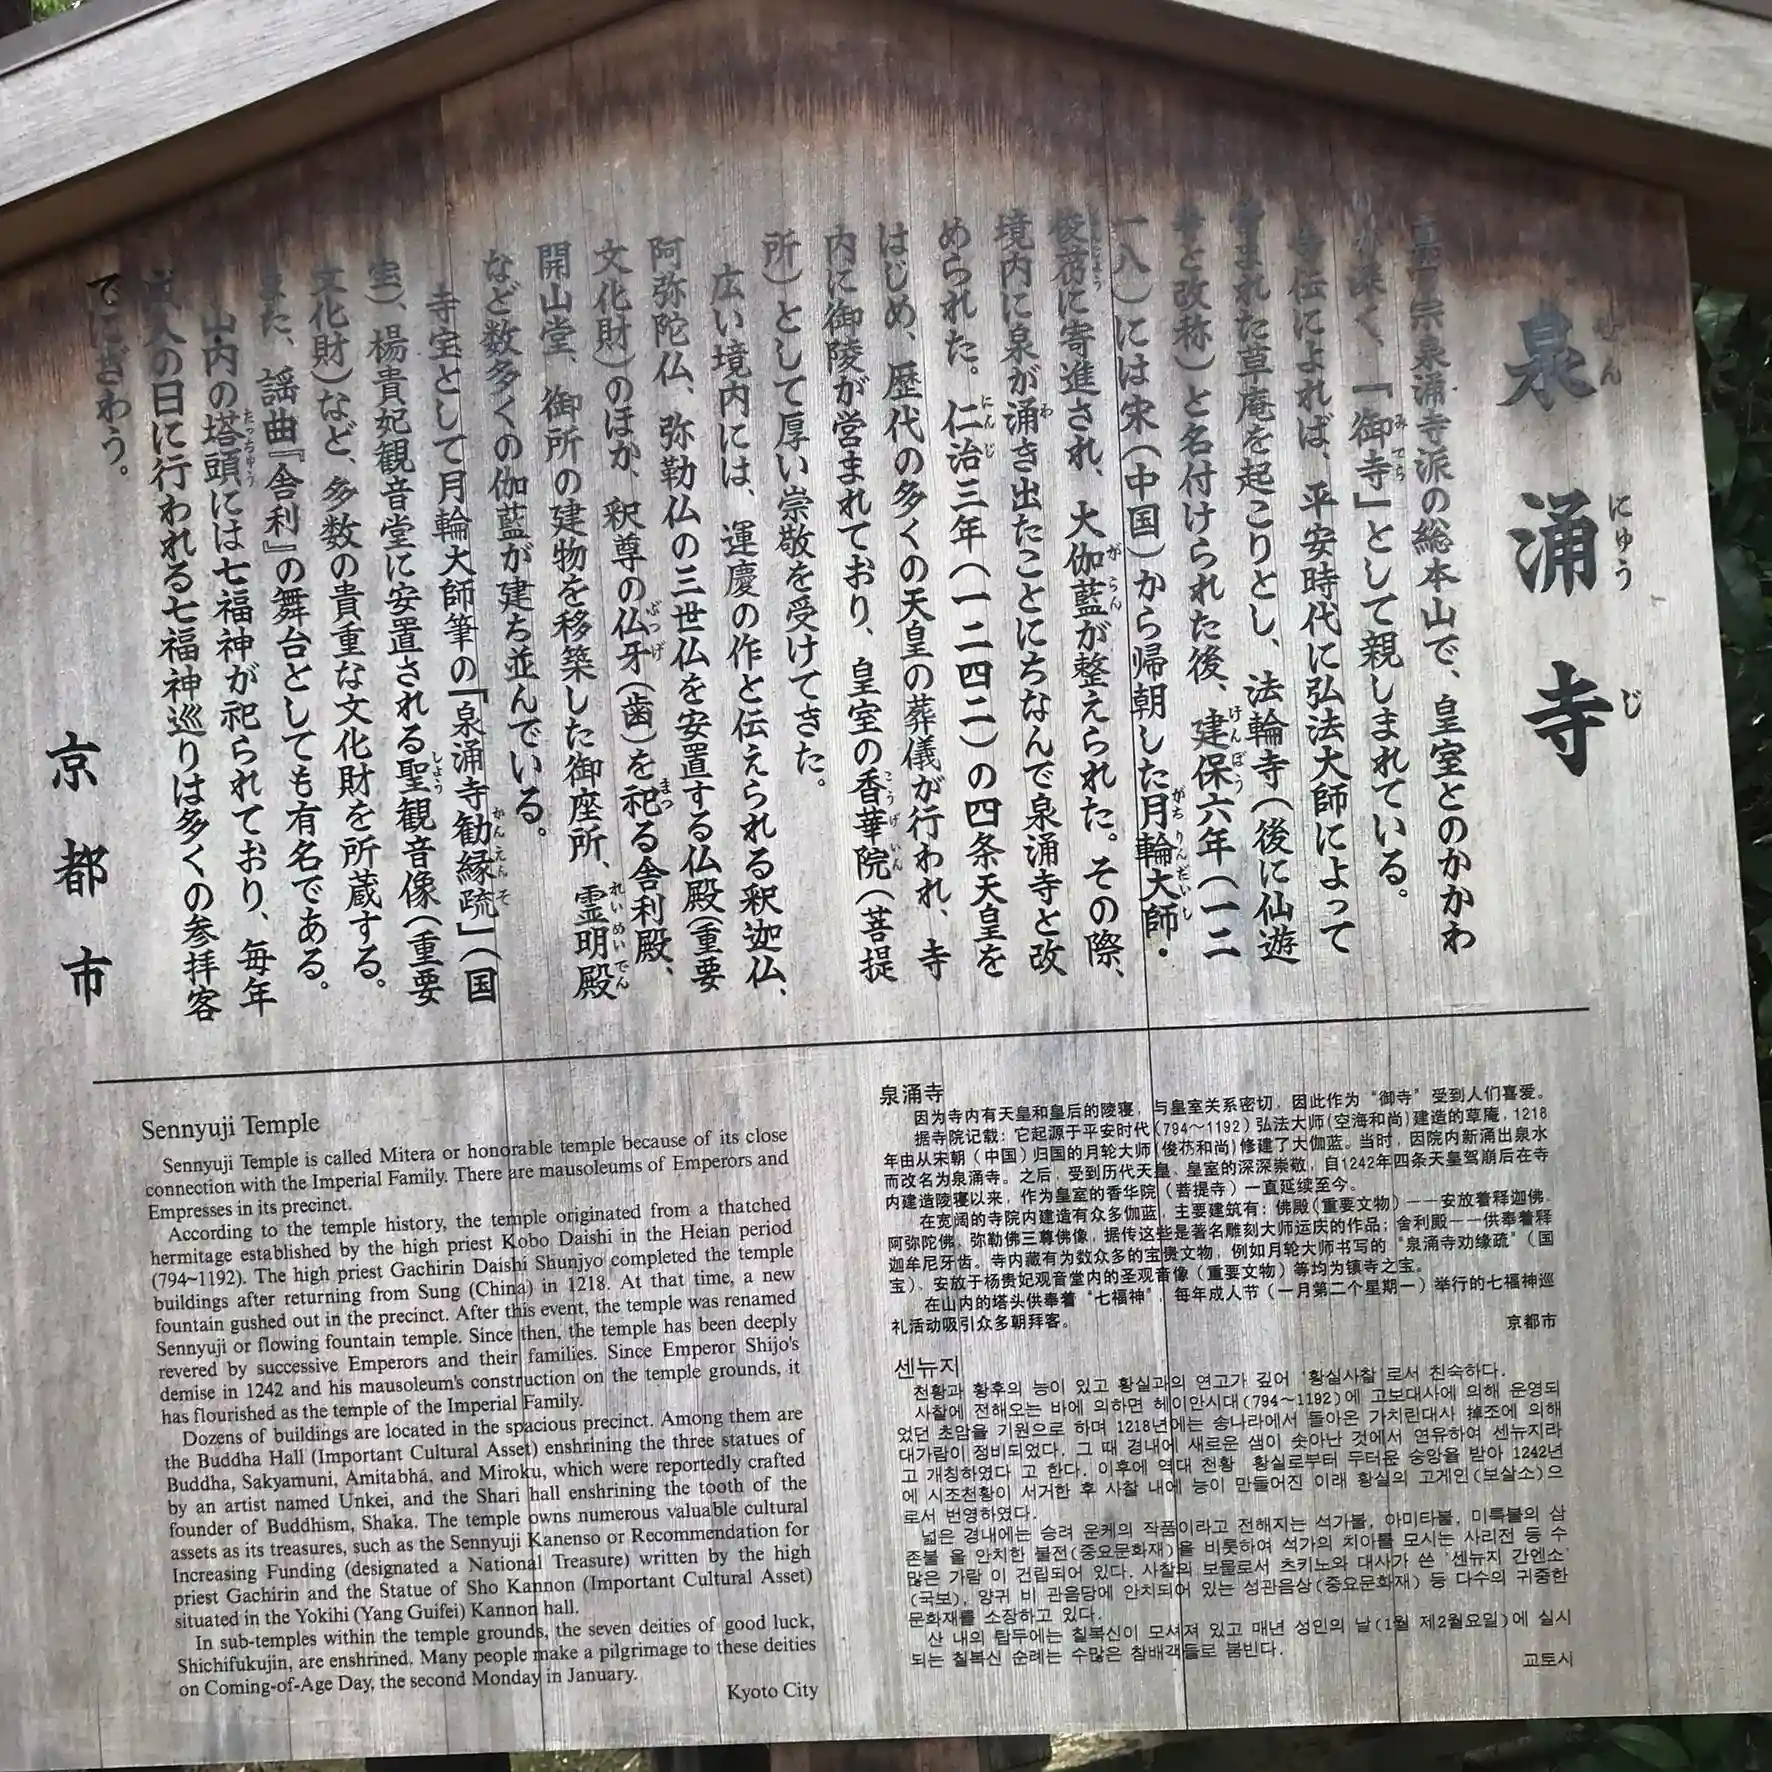 泉涌寺
せんにゅうじ
真言宗泉涌寺派の総本山で、皇室とのかかわ
りが深く、「御寺」として親しまれている。
寺伝によれば、平安時代に弘法大師によって
営まれた草庵を起こりとし、法輪寺（後に仙遊
寺と改称）と名付けられた後、建保六年（一二
一八）には宋（中国）から帰朝した月輪大師・
俊芿に寄進され、大伽藍が整えられた。その際、
境内に泉が涌き出たことにちなんで泉涌寺と改
められた。仁治三年（一二四二）の四条天皇を
はじめ、歴代の多くの天皇の葬儀が行われ、寺
内に御陵が営まれており、皇室の香華院（菩提
所）として厚い崇敬を受けてきた。
広い境内には、運慶の作と伝えられる釈迦仏、
阿弥陀仏、弥勒仏の三世仏を安置する仏殿（重要
文化財）のほか、釈尊の仏牙（歯）を祀る舎利殿、
開山堂、御所の建物を移築した御座所、霊明殿
など数多くの伽藍が建ち並んでいる。
寺宝として月輪大師筆の「泉涌寺勧縁疏」（国
宝）、楊貴妃観音堂に安置される聖観音像（重要
文化財）など、多数の貴重な文化財を所蔵する。
また、謡曲『舎利』の舞台としても有名である。
山内の塔頭には七福神が祀られており、毎年
成人の日に行われる七福神巡りは多くの参拝客
でにぎわう。
京都市
Sennyuji Temple
Sennyuji Temple is called Mitera or honorable temple because of its close
connection with the Imperial Family. There are mausoleums of Emperors and
Empresses in its precinct.
According to the temple history, the temple originated from a thatched
hermitage established by the high priest Kobo Daishi in the Heian period
(794~1192). The high priest Gachirin Daishi Shunjyo completed the temple
buildings after returning from Sung (China) in 1218. At that time, a new
fountain gushed out in the precinct. After this event, the temple was renamed
Sennyuji or flowing fountain temple. Since then, the temple has been deeply
revered by successive Emperors and their families. Since Emperor Shijo's
demise in 1242 and his mausoleum's construction on the temple grounds, it
has flourished as the temple of the Imperial Family.
Dozens of buildings are located in the spacious precinct. Among them are
the Buddha Hall (Important Cultural Asset) enshrining the three statues of
Buddha, Sakyamuni, Amitabhá, and Miroku, which were reportedly crafted
by an artist named Unkei, and the Shari hall enshrining the tooth of the
founder of Buddhism, Shaka. The temple owns numerous valuable cultural
assets as its treasures, such as the Sennyuji Kanenso or Recommendation for
Increasing Funding (designated a National Treasure) written by the high
priest Gachirin and the Statue of Sho Kannon (Important Cultural Asset)
situated in the Yokihi (Yang Guifei) Kannon hall.
In sub-temples within the temple grounds, the seven deities of good luck,
Shichifukujin, are enshrined. Many people make a pilgrimage to these deities
on Coming-of-Age Day, the second Monday in January.
Kyoto City
泉涌寺
因为寺内有天皇和皇后的陵寝，与皇室关系密切，因此作为“御寺”受到人们喜爱。
据寺院记载：它起源于平安时代（794～1192）弘法大师(空海和尚)建造的草庵，1218
年由从宋朝（中国）归国的月轮大师(俊芿和尚)修建了大伽蓝。当时，因院内新涌出泉水
而改名为泉涌寺。之后，受到历代天皇、皇室的深深崇敬，自1242年四条天皇驾崩后在寺
内建造陵寝以来，作为皇室的香华院（菩提寺）一直延续至今。
在宽阔的寺院内建造有众多伽蓝，主要建筑有：佛殿(重要文物)——安放着释迦佛、
阿弥陀佛、弥勒佛三尊佛像，据传这些是著名雕刻大师运庆的作品；舍利殿——供奉着释
迦牟尼牙齿。寺内藏有为数众多的宝贵文物，例如月轮大师书写的“泉涌寺劝缘疏”（国
宝）、安放于杨贵妃观音堂内的圣观音像（重要文物）等均为镇寺之宝。
在山内的塔头供奉着“七福神”，每年成人节（一月第二个星期一）举行的七福神巡
礼活动吸引众多朝拜客。
京都市
센뉴지
천황과 황후의 능이 있고 황실과의 연고가 깊어 '황실사찰'로서 친숙하다.
사찰에 전해오는 바에 의하면 헤이안시대(794～1192)에 고보대사에 의해 운영되
었던 초암을 기원으로 하며 1218년에는 송나라에서 돌아온 가치린대사 에 의해
대가람이 정비되었다. 그 때 경내에 새로운 샘이 솟아난 것에서 연유하여 센뉴지라
고 개칭하였다 고 한다. 이후에 역대 천황 황실로부터 두터운 숭앙을 받아 1242년
에 시조천황이 서거한 후 사찰 내에 능이 만들어진 이래 황실의 고게인(보살소)으
로서 번영하였다.
넓은 경내에는 승려 운케의 작품이라고 전해지는 석가불, 아미타불, 미륵불의 삼
존불 을 안치한 불전(중요문화재)을 비롯하여 석가의 치아를 모시는 사리전 등 수
많은 가람 이 건립되어 있다. 사찰의 보물로서 츠키노와 대사가 쓴 '센뉴지 간엔소'
(국보), 양귀 비 관음당에 안치되어 있는 성관음상(중요문화재) 등 다수의 귀중한
문화재를 소장하고 있다.
산 내의 탑두에는 칠복신이 모셔져 있고 매년 성인의 날(1월 제2월요일)에 실시
되는 칠복신 순례는 수많은 참배객들로 붐빈다.
교토시